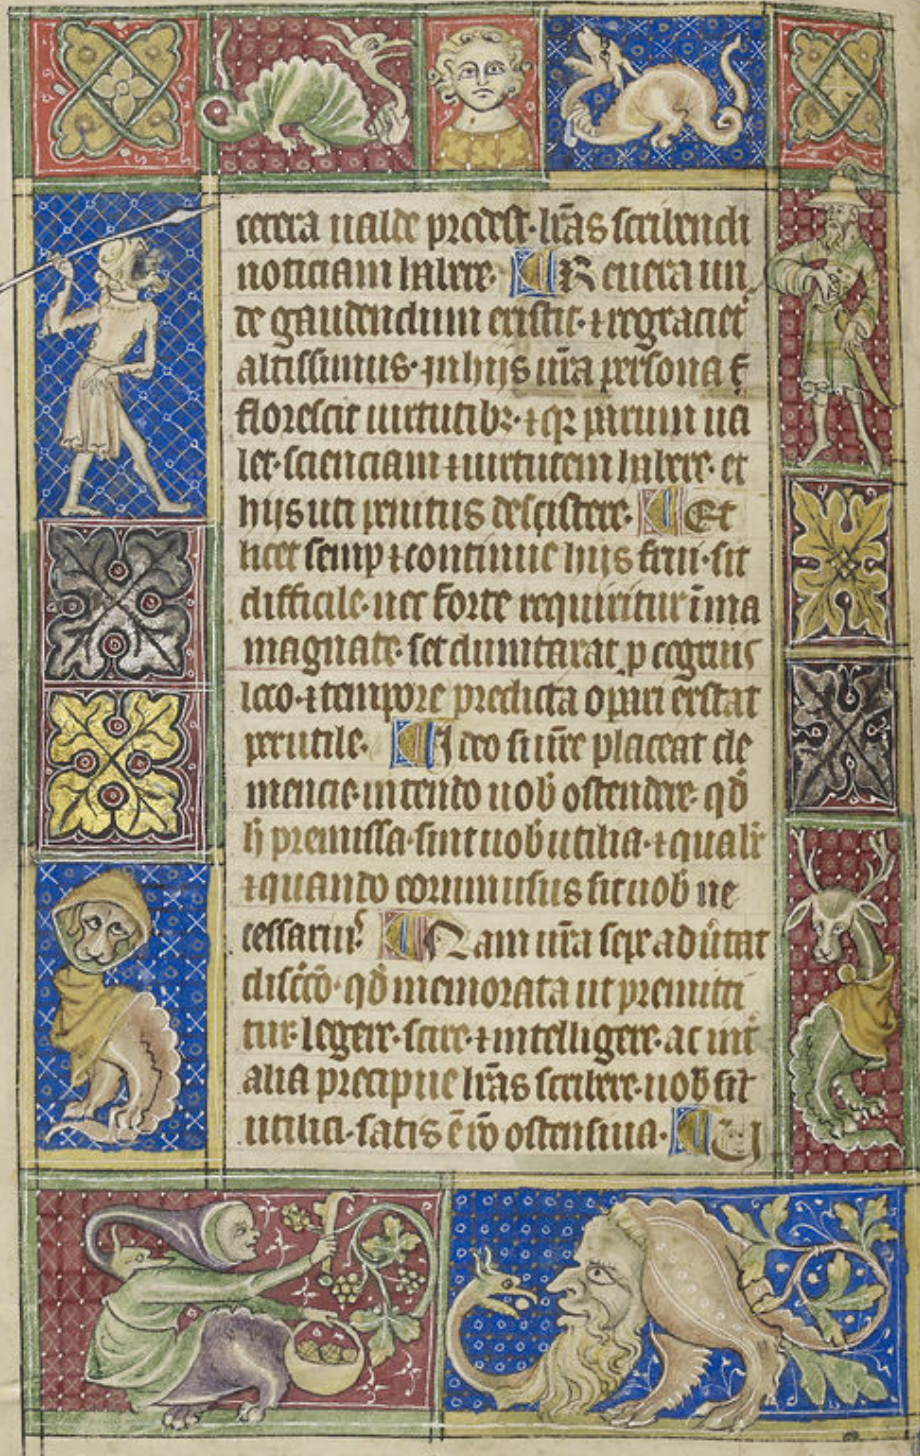 cetera ualde prodest. lr̃as scribendi
noticiam habere. Reuera un
de gaudendum existit. ⁊ regraciet᷑
altissimus. in hijs ur̃a persona
florescit uirtutibꝫ. ⁊ parum ua
let. scienciam ⁊ uirtutem habere. et
hijs uti penitus desistere. Et
licet semp ⁊ continue hijs frui. sit
difficile. nec forte requiritur ĩ ma
magnate. set dumtaxat ꝑ congruis
loco. ⁊ tempore predicta opari exstat
perutile. Ideo si ur̃e placeat cle
mencie. intendo uob̃ ostendere. qd̃
h̃ premissa. sint uob̃ utilia. ⁊ qualr̃
⁊ quando eorum usus sit uob̃ ne
cessarius. Nam ur̃a
discc̃o. qd̃ memorata ut premitti
tur. legere. scire. ⁊ intelligere. ac int̃
alia precipue lr̃as scribere. uob̃ sit
utilia. satis ostensiua.